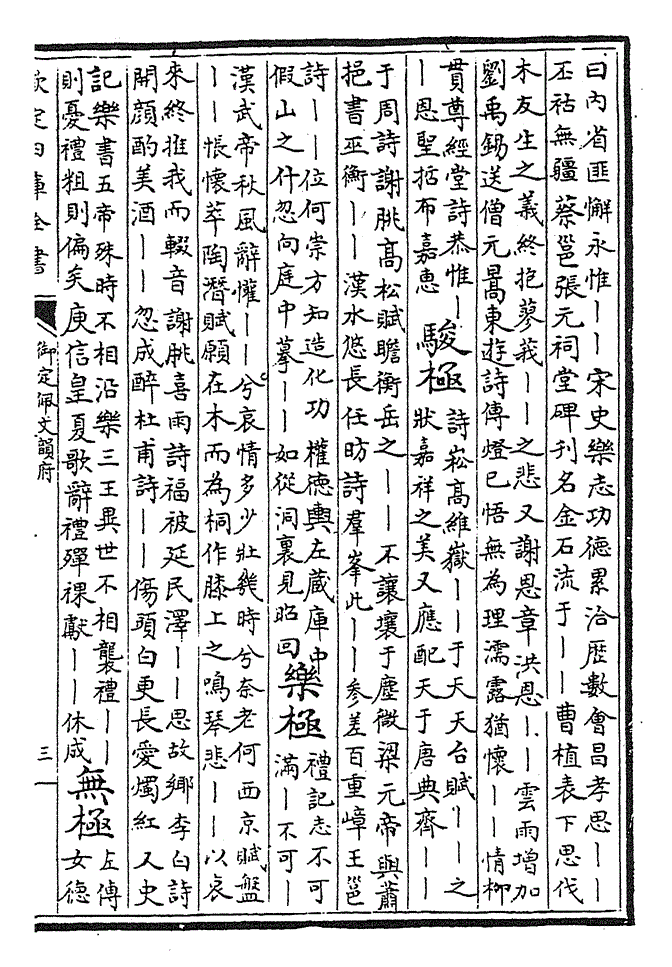 曰內省匪懈永惟丨丨宋史樂志功德累洽歴數會昌孝思丨丨
丕祜無疆蔡邕張元祠堂碑刋名金石流于丨丨曹植表下思伐
木友生之義終抱蓼莪丨丨之悲又謝恩章洪恩丨丨雲雨增加
劉禹錫送僧元暠東遊詩傳燈已悟無為理濡露猶懷丨丨情栁
貫尊經堂詩恭惟丨
丨恩聖括布嘉惠
駿極
詩崧高維嶽丨丨于天天台賦丨丨之
狀嘉祥之美又應配天于唐典齊丨丨
于周詩謝朓高松賦瞻衡岳之丨丨不讓壤于塵微梁元帝與蕭
挹書巫衡丨丨漢水悠長任昉詩羣峯此丨丨參差百重嶂王邕
詩丨丨位何崇方知造化功權德輿左蔵庫中
假山之什忽向庭中摹丨丨如從洞裏見昭回
樂極
禮記志不可
滿丨不可丨
漢武帝秋風辭懽丨丨兮哀情多少壯幾時兮奈老何西京賦盤
丨丨悵懷萃陶潛賦願在木而為桐作膝上之鳴琴悲丨丨以哀
來終推我而輟音謝朓喜雨詩福被延民澤丨丨思故鄉李白詩
開顔酌美酒丨丨忽成醉杜甫詩丨丨傷頭白更長愛燭紅又史
記樂書五帝殊時不相沿樂三王異世不相襲禮丨丨
則憂禮粗則偏矣庾信皇夏歌辭禮殫祼獻丨丨休成
無極
左傳
女德
欽定四庫全書
御定佩文韻府
三